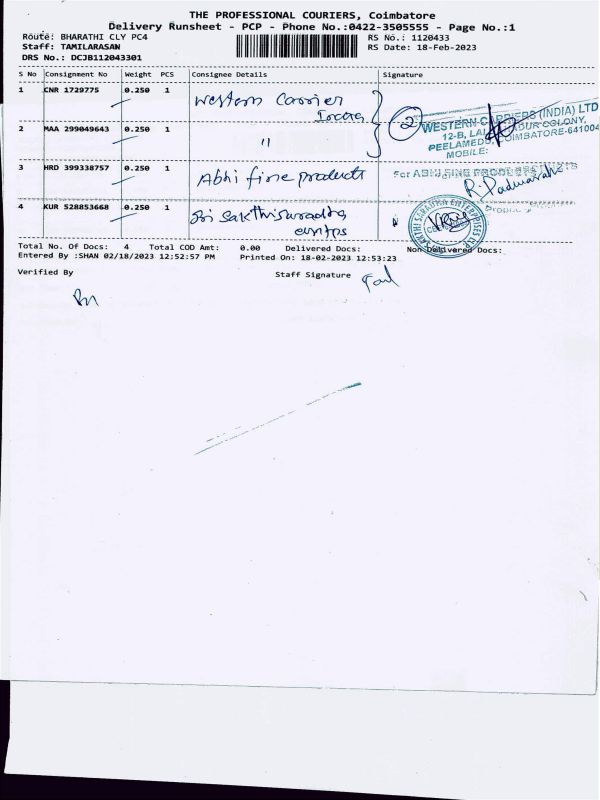 THE PROFESSIONAL COURIERS, Coimbatore
Delivery Runsheet - PCP - Phone No.:0422-3505555 - Page No.:1
Route: BHARATHI CLY PC4
RS No.: 1120433
Staff: TAMILARASAN
RS Date: 18-Feb-2023
DRS No.: DCJB112043301
S No Consignment No Weight PCS Consignee Details Signature
1 CNR 1729775 0.250 1 Western Carrier
India
2 MAA 299049643 0.250 1 "
2
WESTERN CARRIERS (INDIA) LTD
12-B, LAL COLONY,
PEELAMEDU, COIMBATORE-641004
MOBILE:
3 HRD 399338757 0.250 1 Abhi fine products
For ABHI FINE PRODUCTS
R. Padmavathi
4 KUR 528853668 0.250 1 Sri Sakthi
Total No. Of Docs: 4 Total COD Amt: 0.00 Delivered Docs: Non Delivered Docs:
Entered By :SHAN 02/18/2023 12:52:57 PM Printed On: 18-02-2023 12:53:23
Verified By Staff Signature